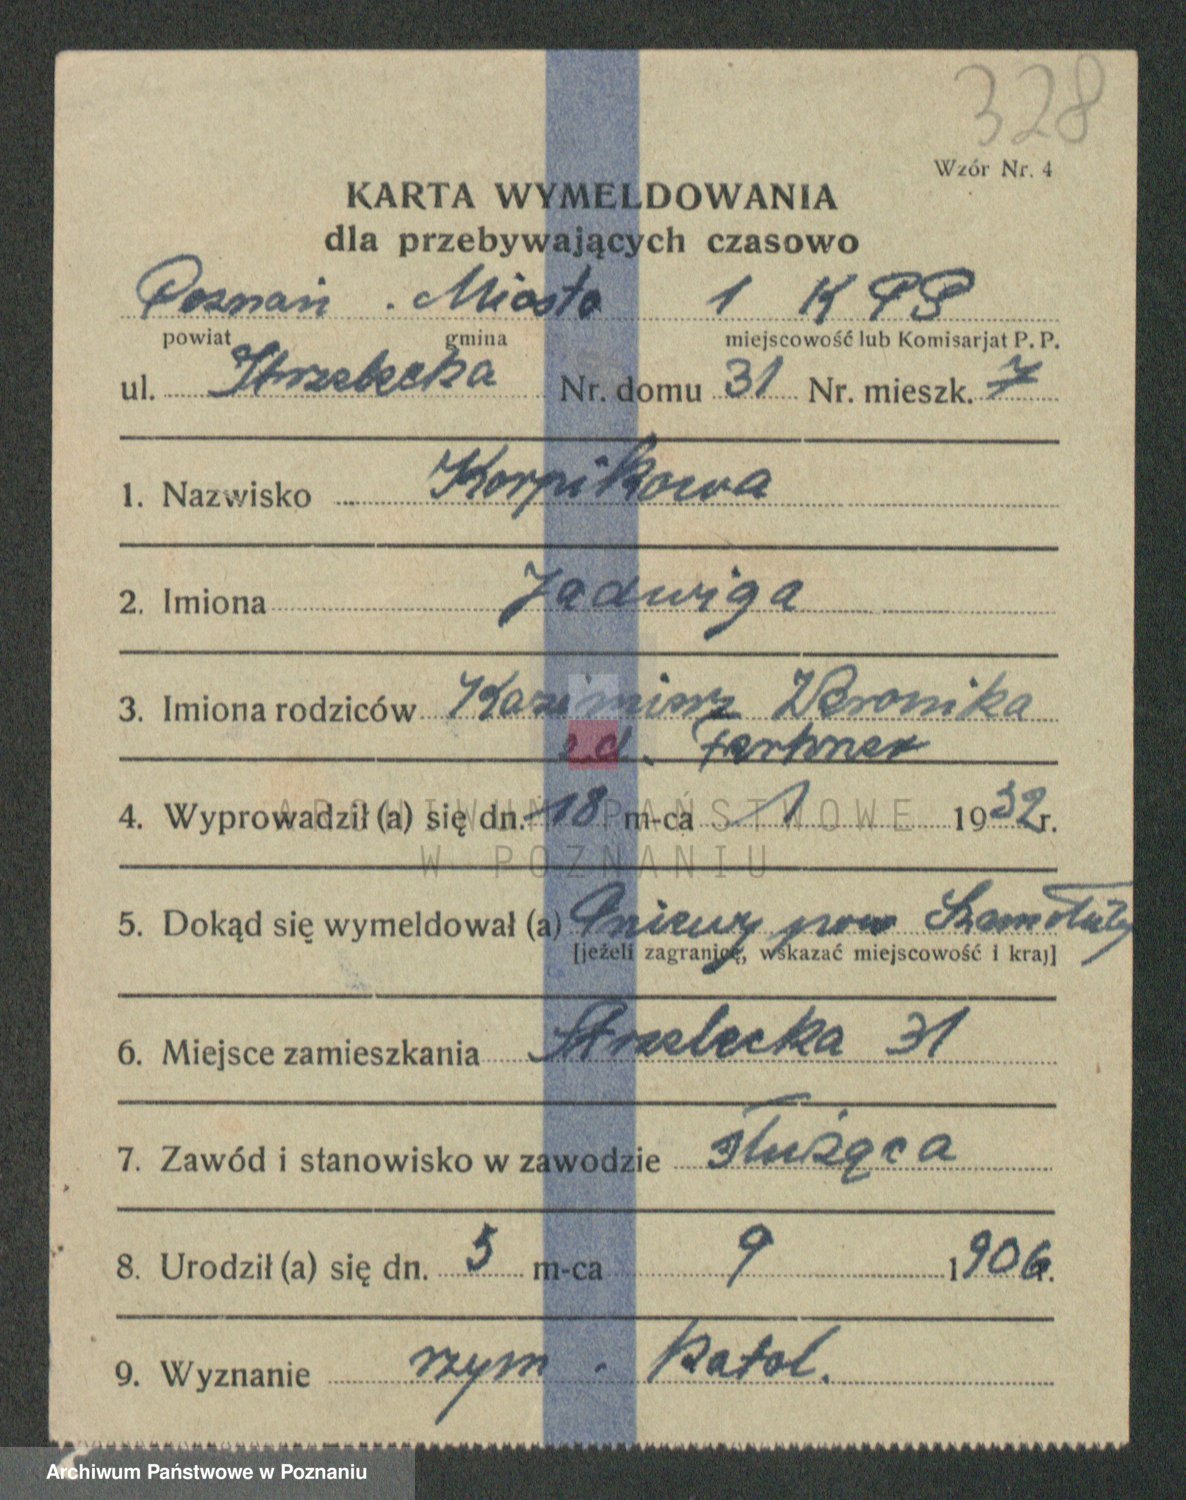 328
Wzór Nr. 4
KARTA WYMELDOWANIA
dla przebywających czasowo
Poznań . Miasto 1 K PP
powiat gmina miejscowość lub Komisarjat P. P.
ul. Strzelecka Nr. domu 31 Nr. mieszk. 7
1. Nazwisko Korpikowa
2. Imiona Jadwiga
3. Imiona rodziców Kazimierz Weronika
z d.
4. Wyprowadził (a) się dn. 18 m-ca 1 1932 r.
ARCHIWUM PAŃSTWOWE
W POZNANIU
5. Dokąd się wymeldował (a) Pniewy pow Szamotuły
[jeżeli zagranicę, wskazać miejscowość i kraj]
6. Miejsce zamieszkania Strzelecka 31
7. Zawód i stanowisko w zawodzie służąca
8. Urodził (a) się dn. 5 m-ca 9 1906 r.
9. Wyznanie rzym. katol.
Archiwum Państwowe w Poznaniu